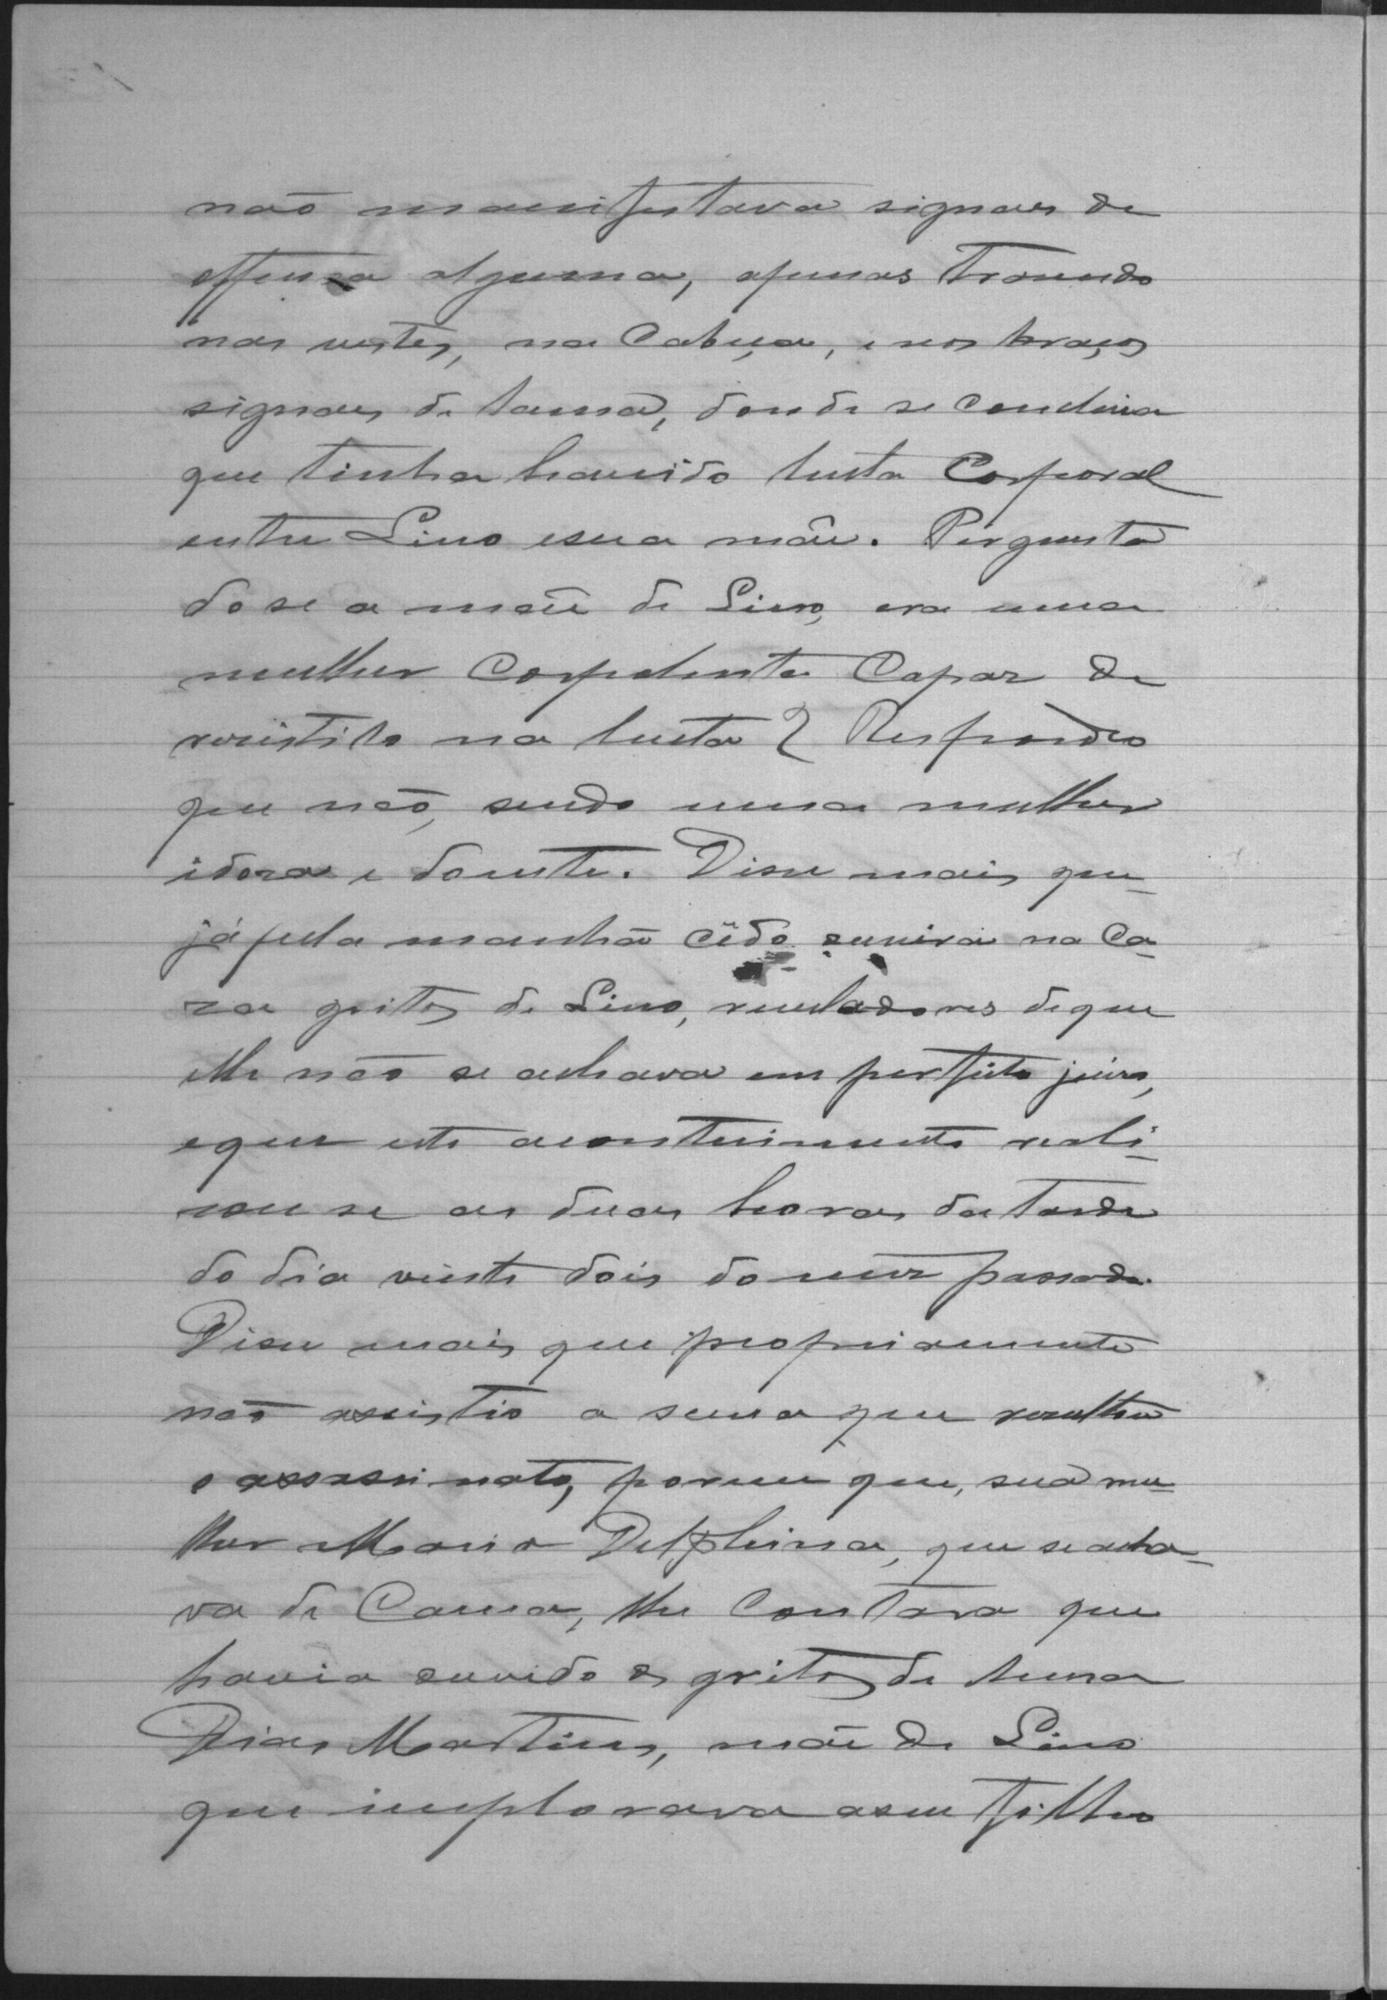 não manifestava signaes de
offensa alguma, apenas trasendo
nas vestes, na Cabeça, e nos braços
signaes de lama, donde se concluia
que tinha havido lucta Corporal
entre Lino e sua mãe. Pergunta
do se a mãe de Lino, era uma
mulher Corpolenta Capaz de
resistilo na lucta? Respondeo
que não, sendo uma mulher
idoza e doente. Disse mais que
já pela manhã cêdo ouvira na Ca-
za gritos de Lino, reveladores de que
elle não se achava em perfeito juizo,
e que este acontecimento reali-
zou se as duas horas da tarde
do dia vinte dois do mez passado.
Disse mais que propriamente
não assistio a scena que resultou
o assassinato, porem que, sua mu-
lher Maria Delphina, que se acha-
va de Cama, lhe Contara que
havia ouvido os gritos de
Dias Martins, mãe de Lino
que implorava a seu filho